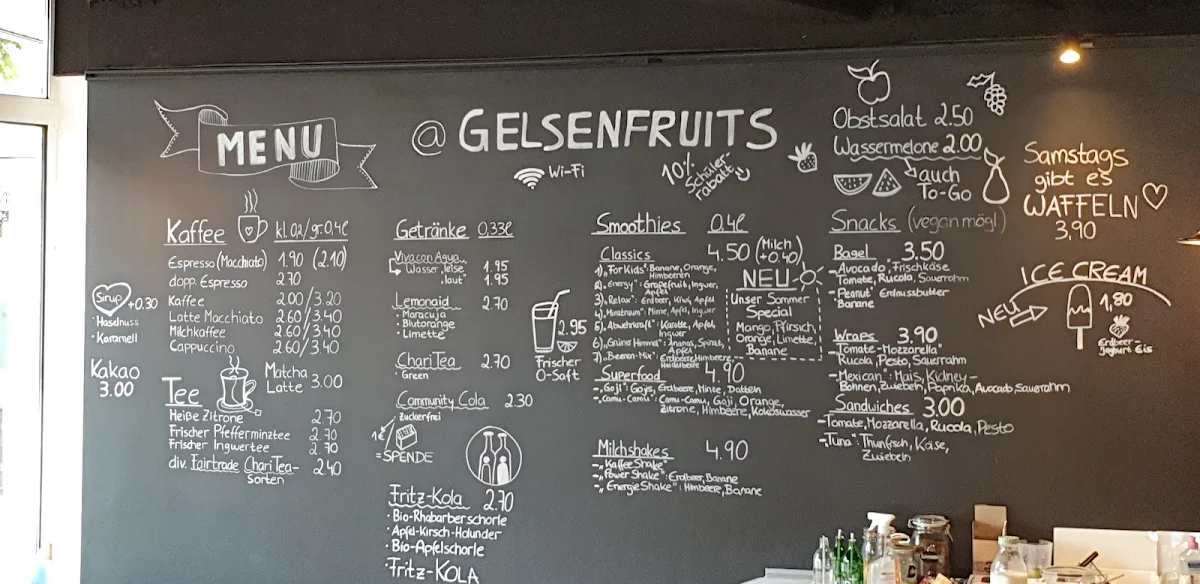 MENU
@ GELSENFRUITS
Wi-Fi
10% Schüler-
rabatt
Kaffee kl.0,2/gr.0,4l
Espresso (Macchiato) 1.90 (2.10)
dopp. Espresso 2.70
Kaffee 2.00/3.20
Latte Macchiato 2.60/3.40
Milchkaffee 2.60/3.40
Cappuccino 2.60/3.40
Sirup +0.30
· Haselnuss
· Karamell
Kakao
3.00
Matcha
Latte 3.00
Tee
Heiße Zitrone 2.70
Frischer Pfefferminztee 2.70
Frischer Ingwertee 2.70
div. Fairtrade ChariTea- 2.40
Sorten
Getränke 0,33l
Viva con Agua
Wasser, leise 1.95
, laut 1.95
Lemonaid 2.70
· Maracuja
· Blutorange
· Limette
ChariTea 2.70
· Green
Community Cola 2.30
zuckerfrei
1€/
=SPENDE
Fritz-Kola 2.70
· Bio-Rhabarberschorle
· Apfel-Kirsch-Holunder
· Bio-Apfelschorle
· Fritz-KOLA
2.95
Frischer
O-Saft
Smoothies 0,4l
Classics 4.50 (Milch
+0.40)
1) „For Kids": Banane, Orange,
Himbeeren
2) „Energy": Grapefruit, Ingwer,
Apfel
3) „Relax": Erdbeer, Kiwi, Apfel
Minze, Apfel, Ingwer
5) „Abwehrkraft": Karotte, Apfel,
Ingwer
6) „Grüne Himmel": Ananas, Spinat,
Apfel
7) „Beeren-Mix": Erdbeere, Himbeere,
Heidelbeere
NEU
Unser Sommer
Special
Mango, Pfirsich,
Orange, Limette,
Banane
Superfood 4.90
-„Goji": Goji, Erdbeere, Minze, Datteln
-„Camu-Camu": Camu-Camu, Goji, Orange,
Zitrone, Himbeere, Kokoswasser
Milchshakes 4.90
-„KaffeeShake"
-„PowerShake": Erdbeer, Banane
-„EnergieShake": Himbeere, Banane
Obstsalat 2.50
Wassermelone 2.00
auch
To-Go
Snacks (vegan mögl)
Bagel 3.50
-Avocado, Frischkäse
Tomate, Rucola, Sauerrahm
-Peanut Erdnussbutter
Banane
Wraps 3.90
-„Tomate-Mozzarella"
Rucola, Pesto, Sauerrahm
-„Mexican": Mais, Kidney-
Bohnen, Zwiebeln, Paprika, Avocado, Sauerrahm
Sandwiches 3.00
-Tomate, Mozzarella, Rucola, Pesto
-„Tuna": Thunfisch, Käse,
Zwiebeln
Samstags
gibt es
WAFFELN
3,90
ICE CREAM
NEU
1,80
Erdbeer-
Joghurt Eis